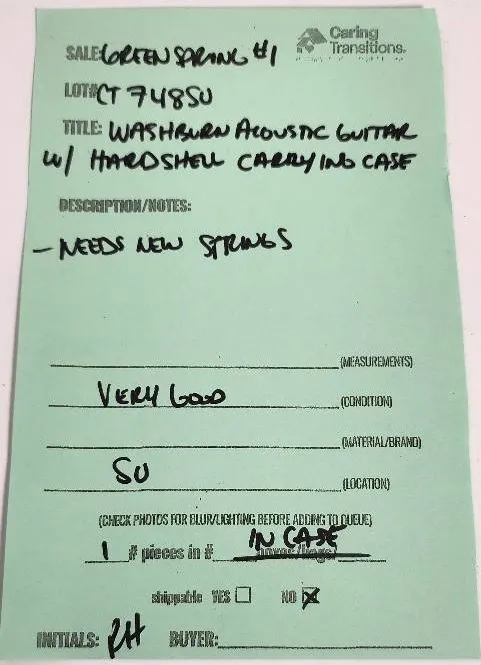 SALE: GREEN SPRING #1
Caring
Transitions.
LOT# CT 748SU
TITLE: WASHBURN ACOUSTIC GUITAR
W/ HARDSHELL CARRYING CASE
DESCRIPTION/NOTES:
- NEEDS NEW STRINGS
(MEASUREMENTS)
VERY GOOD (CONDITION)
(MATERIAL/BRAND)
SU (LOCATION)
(CHECK PHOTOS FOR BLUR/LIGHTING BEFORE ADDING TO QUEUE)
1 # pieces in # IN CASE boxes/bags/
shippable YES ☐ NO ☒
INITIALS: RH BUYER: